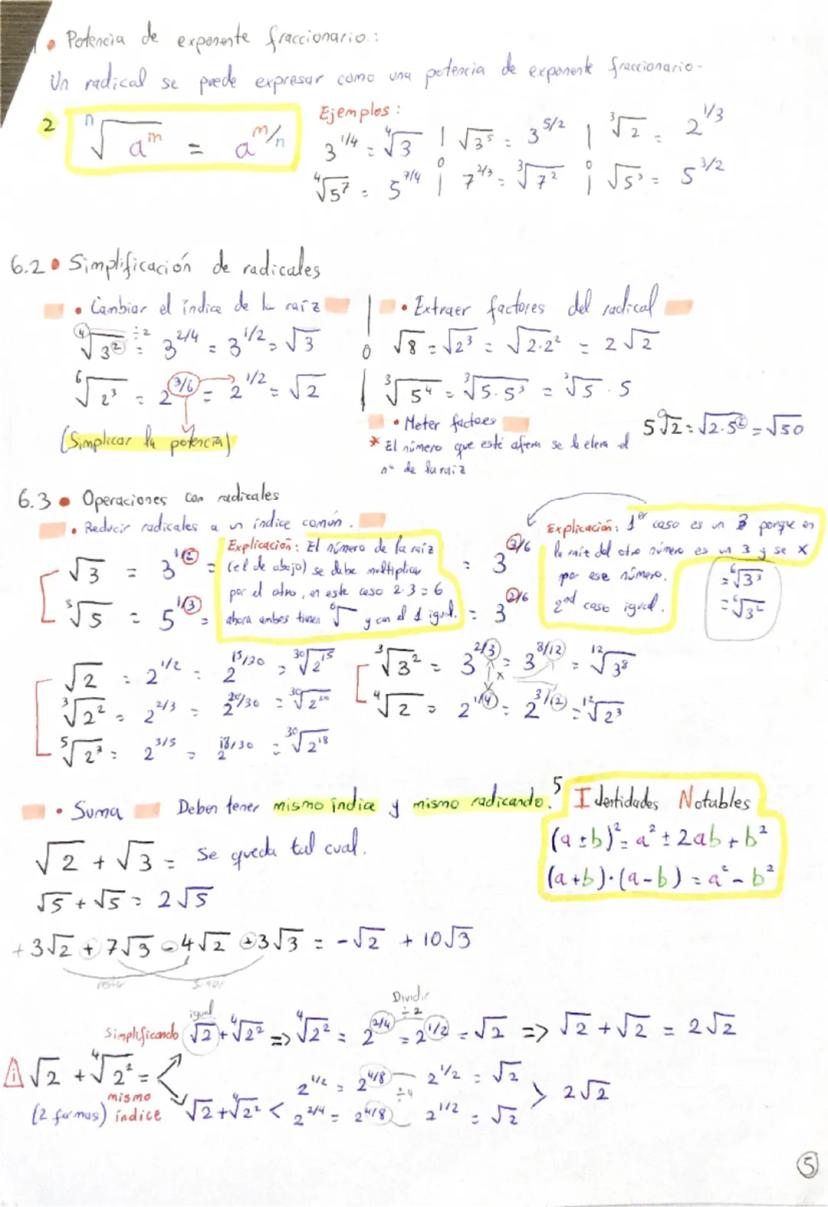 • Potencia de exponente fraccionario:
Un radical se puede expresar como una potencia de exponente fraccionario.
2 ⁿ√aᵐ = a^m/n
Ejemplos:
3^1/4 = ⁴√3 | √3⁵ = 3^5/2 | ³√2 = 2^1/3
⁴√5⁷ = 5^7/4 | 7^2/3 = ³√7² | √5³ = 5^3/2
6.2 • Simplificación de radicales
• Cambiar el índice de la raíz
⁴√3² ÷2 = 3^2/4 = 3^1/2 = √3
⁶√2³ = 2^3/6 = 2^1/2 = √2
(Simplicar la potencia)
• Extraer factores del radical
√8 = √2³ = √2·2² = 2√2
³√5⁴ = ³√5·5³ = ³√5 · 5
• Meter factores
5√2 = √2·5² = √50
* El número que esté afuera se le eleva el
nº de la raíz
6.3 • Operaciones con radicales
• Reducir radicales a un índice común.
√3 = 3^1/2 =
⁵√5 = 5^1/3 =
Explicación: El número de la raíz
(el de abajo) se debe multiplicar
por el otro, en este caso 2·3=6
ahora ambos tienen ⁶√ y con el 1 igual.
= 3^3/6
= 3^2/6
Explicación: 1er caso es un 3 porque en
la raíz del otro número es un 3 y se x
por ese número.
2nd caso igual.
= ⁶√3³
= ⁶√3²
√2 = 2^1/2 = 2^15/30 = ³⁰√2¹⁵
³√2² = 2^2/3 = 2^20/30 = ³⁰√2²⁰
⁵√2³ = 2^3/5 = 2^18/30 = ³⁰√2¹⁸
³√3² = 3^2/3 = 3^8/12 = ¹²√3⁸
x
⁴√2 = 2^1/4 = 2^3/12 = ¹²√2³
• Suma Deben tener mismo índice y mismo radicando.
5 Identidades Notables
(a±b)² = a² ± 2ab + b²
(a+b)·(a-b) = a² - b²
√2 + √3 = Se queda tal cual.
√5 + √5 = 2√5
+3√2 + 7√3 - 4√2 + 3√3 = -√2 + 10√3
restar sumar
Simplificando igual √2 + ⁴√2² => ⁴√2² = 2^2/4 Dividir ÷2 = 2^1/2 = √2 => √2 + √2 = 2√2
√2 + ⁴√2² = <
(2 formas) mismo índice √2 + ⁴√2² <
2^1/2 = 2^4/8 2^1/2 = √2
÷4 > 2√2
2^2/4 = 2^4/8 2^1/2 = √2
5